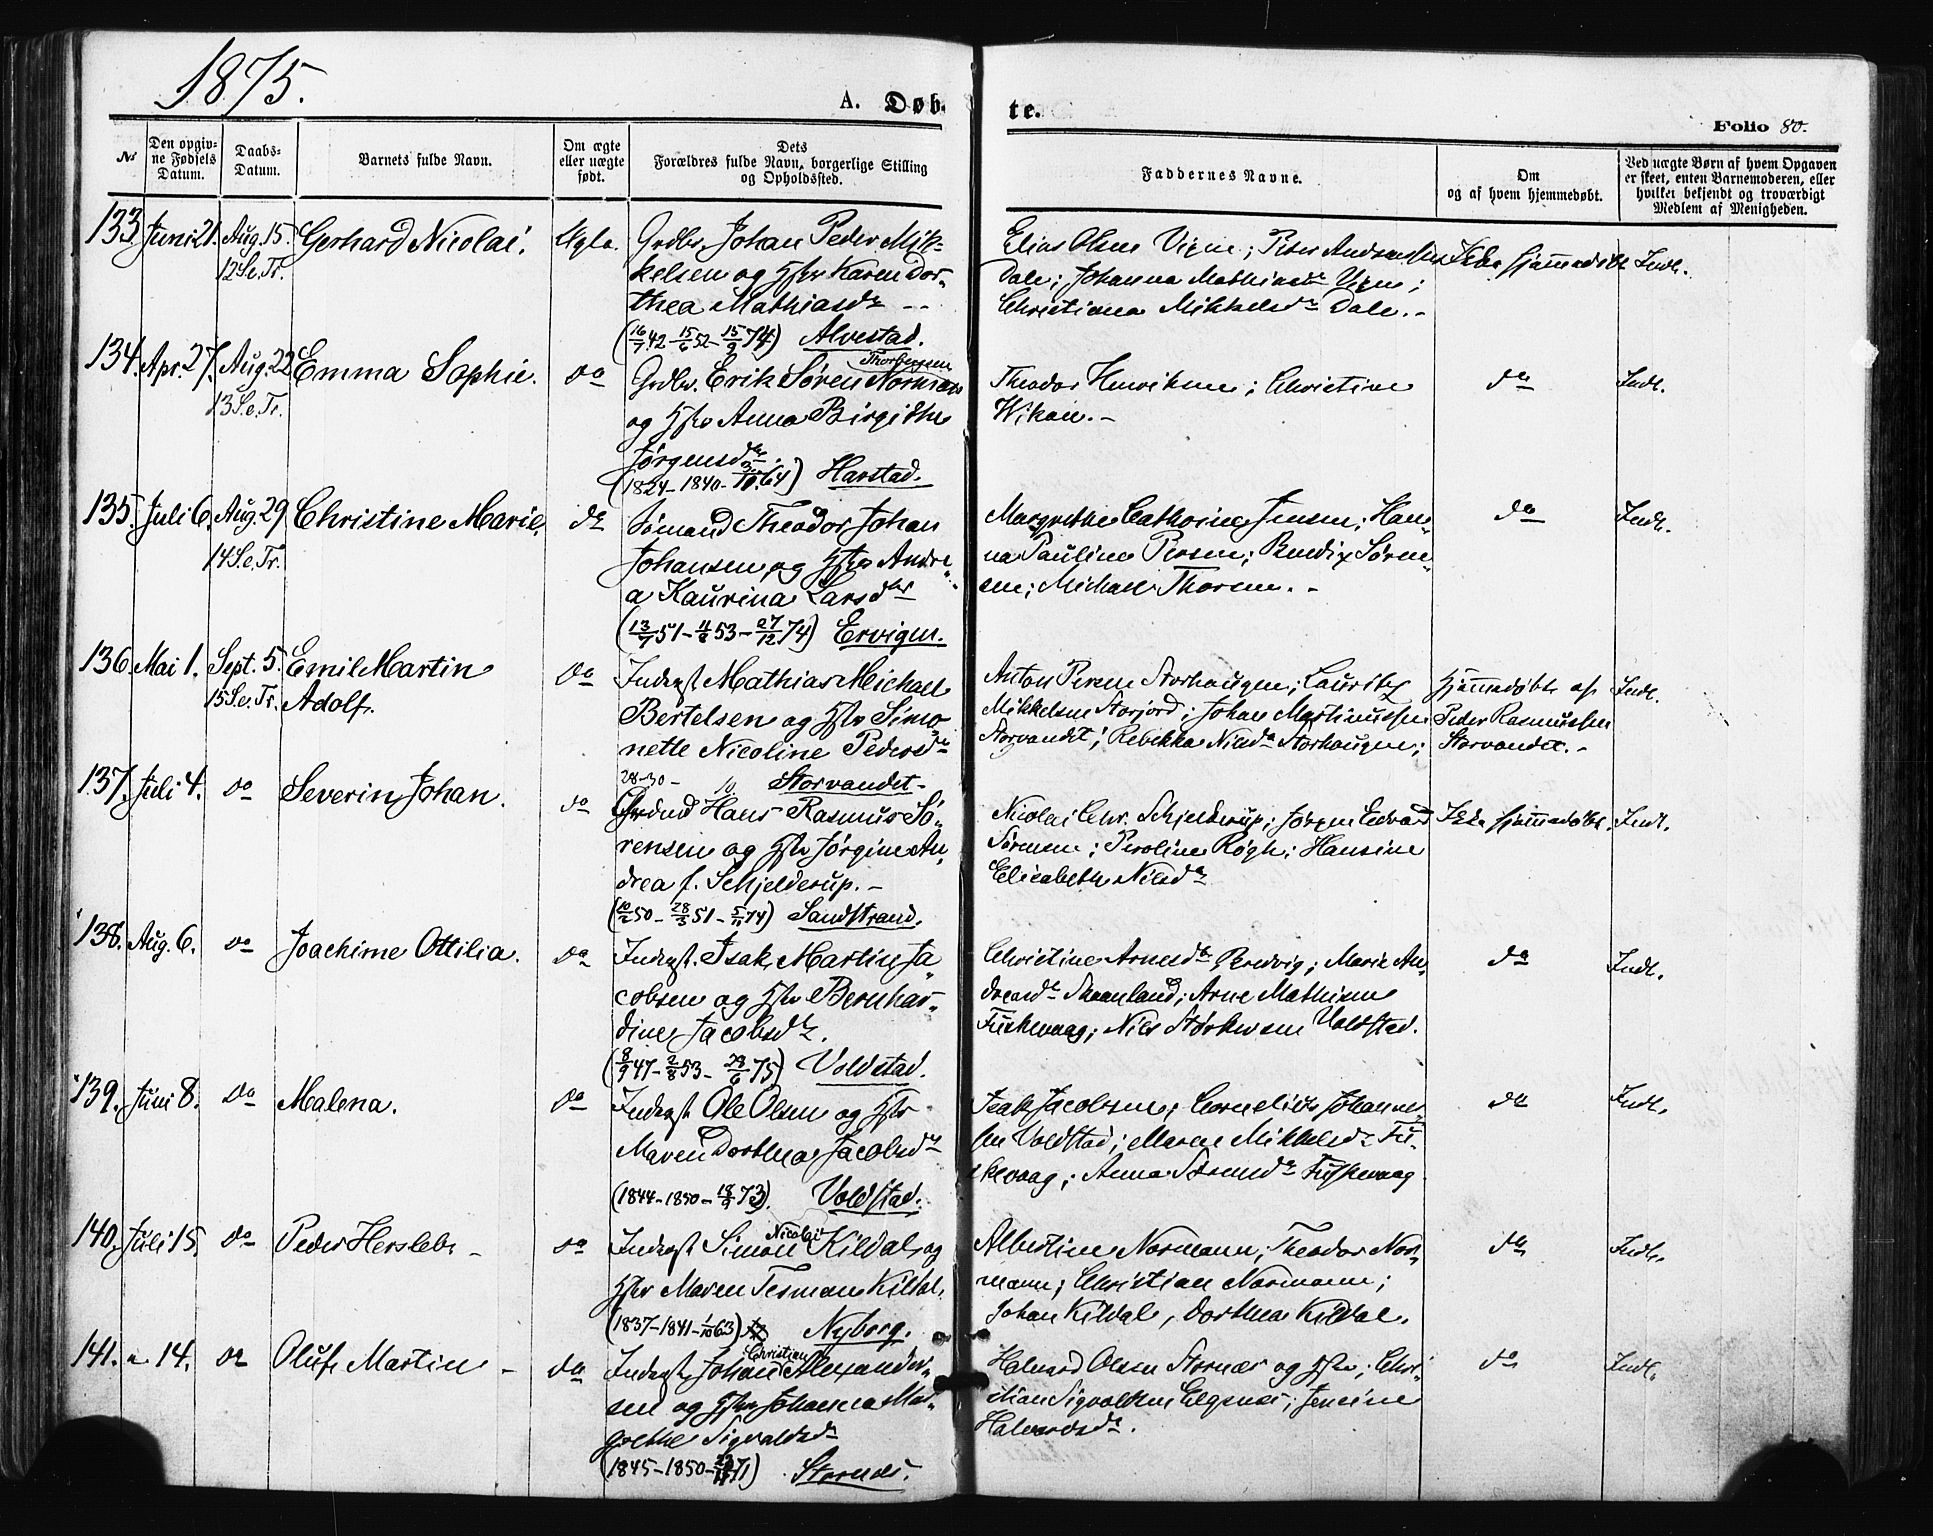 1875.
A. Døb-
te.
Folio 80.
№
Den opgiv-
ne Fødsels
Datum.
Daabs-
Datum.
Barnets fulde Navn.
Om ægte
eller uægte
født.
Dets
Forældres fulde Navn, borgerlige Stilling
og Opholdssted.
Faddernes Navne.
Om
og af hvem hjemmedøbt.
Ved uægte Børn af hvem Opgaven
er skeet, enten Barnemoderen, eller
hvilket bekjendt og troværdigt
Medlem af Menigheden.
133. Juni 21. Aug. 15. Gerhard Nicolai.
12 S.e.Tr.
Johan Peder Mik-
kelsen og Hstr Karen Dor-
thea Mathiasdr
(16/7 42 - 15/6 52 - 15/9 74) Alvestad.
Elias Olsen; Peter Andreas
Dale; Johanna Mathiasdr;
Christiana Mikkelsdr Dale. -
Ikke hjemmedøbt Indl.
134. Apr. 27. Aug. 22 Emma Sophie. do
13 S.e.Tr.
Thorbergsen
Erik Søren Norman
og Hstr Anna Birgithe
Jørgensdtr.
(1824 - 1840 - 64) Harstad.
Theodor Henriksen; Christine
Wikan. -
do Indl.
135. Juli 6. Aug. 29 Christine Marie. do
14 S.e.Tr.
Sømand Theodor Johan
Johansen og Hstr Andre-
a Kaurina Larsdtr
(13/7 51 - 53 - 27/12 74) Ervigen.
Margrethe Cathrine Jensen; Han-
na Pauline; Bendix Søren-
sen; Michael Thorsen. -
do Indl.
136. Mai 1. Sept. 5. Emil Martin do
15 S.e.Tr. Adolf.
Inderst Mathias Michael
Bertelsen og Hstr Simo-
nette Nicoline Pedersdr
28 - 30 - Storvandet -
Anton Storhaugen; Lauritz
Mikkelsen Storjord; Johan Martinussen
Storvandet; Rebekka Nilsdr Storhaugen;
Hjemmedøbt af
Peder Rasmussen
Storvandet. -
Indl.
137. Juli 4. do Severin Johan. do
Hans Rasmus Sø-
rensen og Hstr Jørgine An-
drea f. Schjelderup. -
(10/2 50 - 28/3 51 - 5/11 74) Sandstrand.
Nicolai Chr. Schjelderup; Jørgen Edvard
Sørensen; Peroline Røgh; Hansine
Elisabeth Nilsdr
Ikke hjemmedøbt. Indl.
138. Aug. 6. do Joachime Ottilia. do
Inderst. Isak Martin Ja-
cobsen og Hstr Bernhar-
dine Jacobsdr.
(8/9 47 - 2/8 53 - 6 75) Voldstad.
Christine Arnesdr Bredvig; Marie An-
dreasdr Skaanland; Arne Mathisen
Fiskevaag; Nils Størkersen Voldstad.
do Indl.
139. Juni 8. do Malena. do
Inderst Ole Olsen og Hstr
Maren Dorthea Jacobsdr
(1844 - 1850 - 73). Voldstad.
Isak Jacobsen; Cornelius Johannes-
sen Voldstad; Maren Mikkelsdr Fi-
skevaag; Anna Fiskevaag
do Indl.
140. Juli 15. do Peder Hersleb. - do
Nicolai
Inderst Simon Kildal og
Hstr Maren Tesman Kildal.
(1837 - 1841 - 1/10 63) Nyborg.
Albertine Normann; Theodor Nor-
mann; Christian Normann;
Johan Kildal, Dorthea Kildal.
do Indl.
141. " 14. do Oluf Martin - do
Christian
Inderst Johan Alexander-
sen og Hstr Johanna Mar-
grethe Sigvaldsdr
(1845 - 1850 - 71) Stornæs.
Halvard Olsen Stornæs og Hstr; Chri-
stian Sigvaldsen Elgsnæs; Jensine
Halvardsdr.
do Indl.